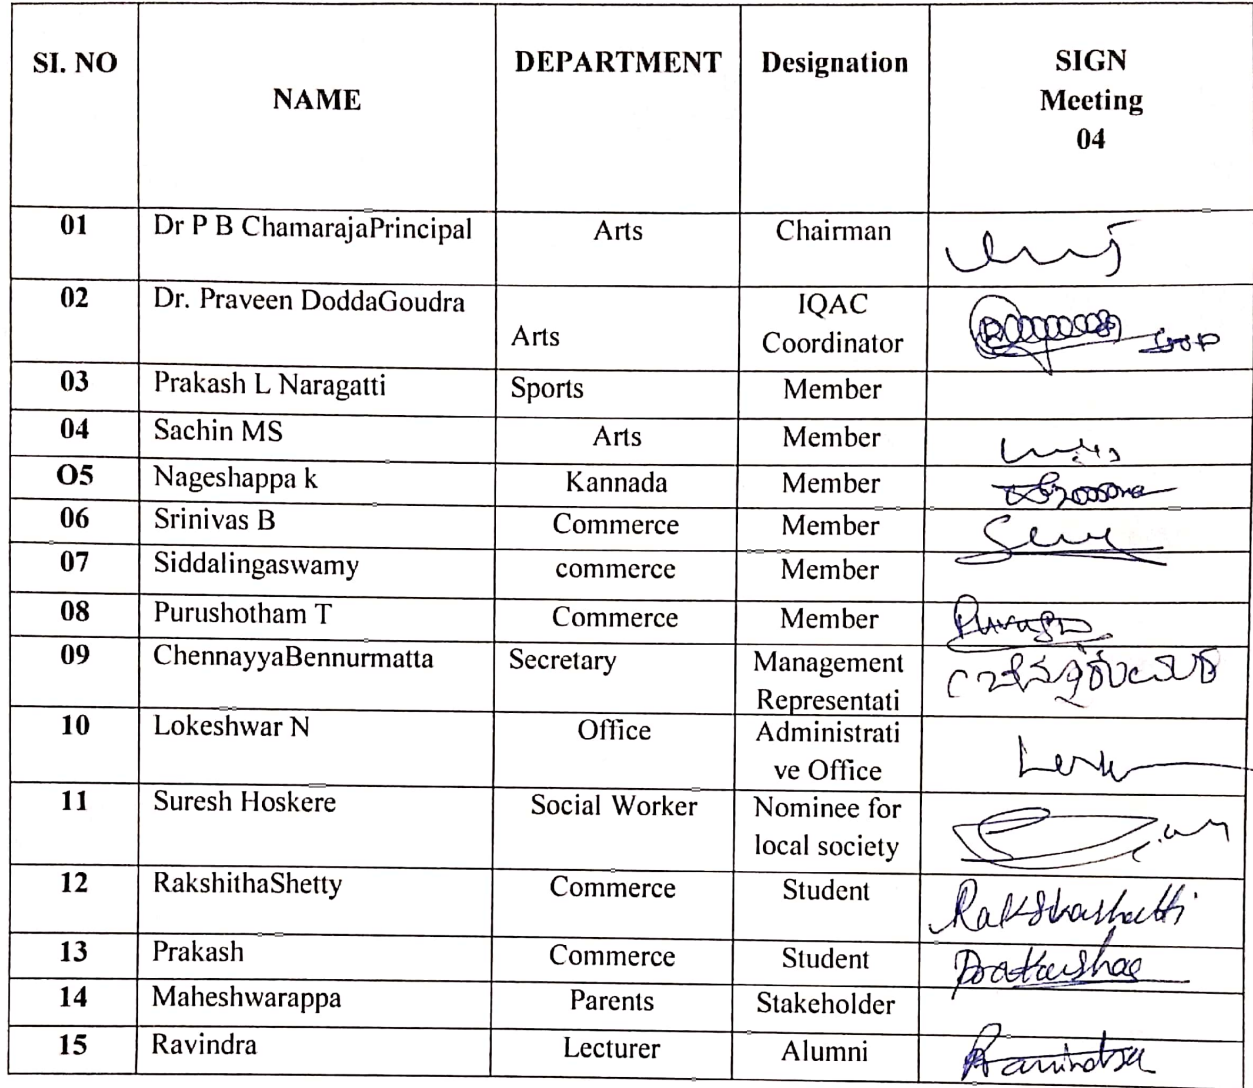 SI. NO
NAME
DEPARTMENT
Designation
SIGN
Meeting
04
01 Dr P B ChamarajaPrincipal Arts Chairman
02 Dr. Praveen DoddaGoudra Arts IQAC
Coordinator
03 Prakash L Naragatti Sports Member
04 Sachin MS Arts Member
O5 Nageshappa k Kannada Member
06 Srinivas B Commerce Member
07 Siddalingaswamy commerce Member
08 Purushotham T Commerce Member
09 ChennayyaBennurmatta Secretary Management
Representati
10 Lokeshwar N Office Administrati
ve Office
11 Suresh Hoskere Social Worker Nominee for
local society
12 RakshithaShetty Commerce Student
13 Prakash Commerce Student
14 Maheshwarappa Parents Stakeholder
15 Ravindra Lecturer Alumni